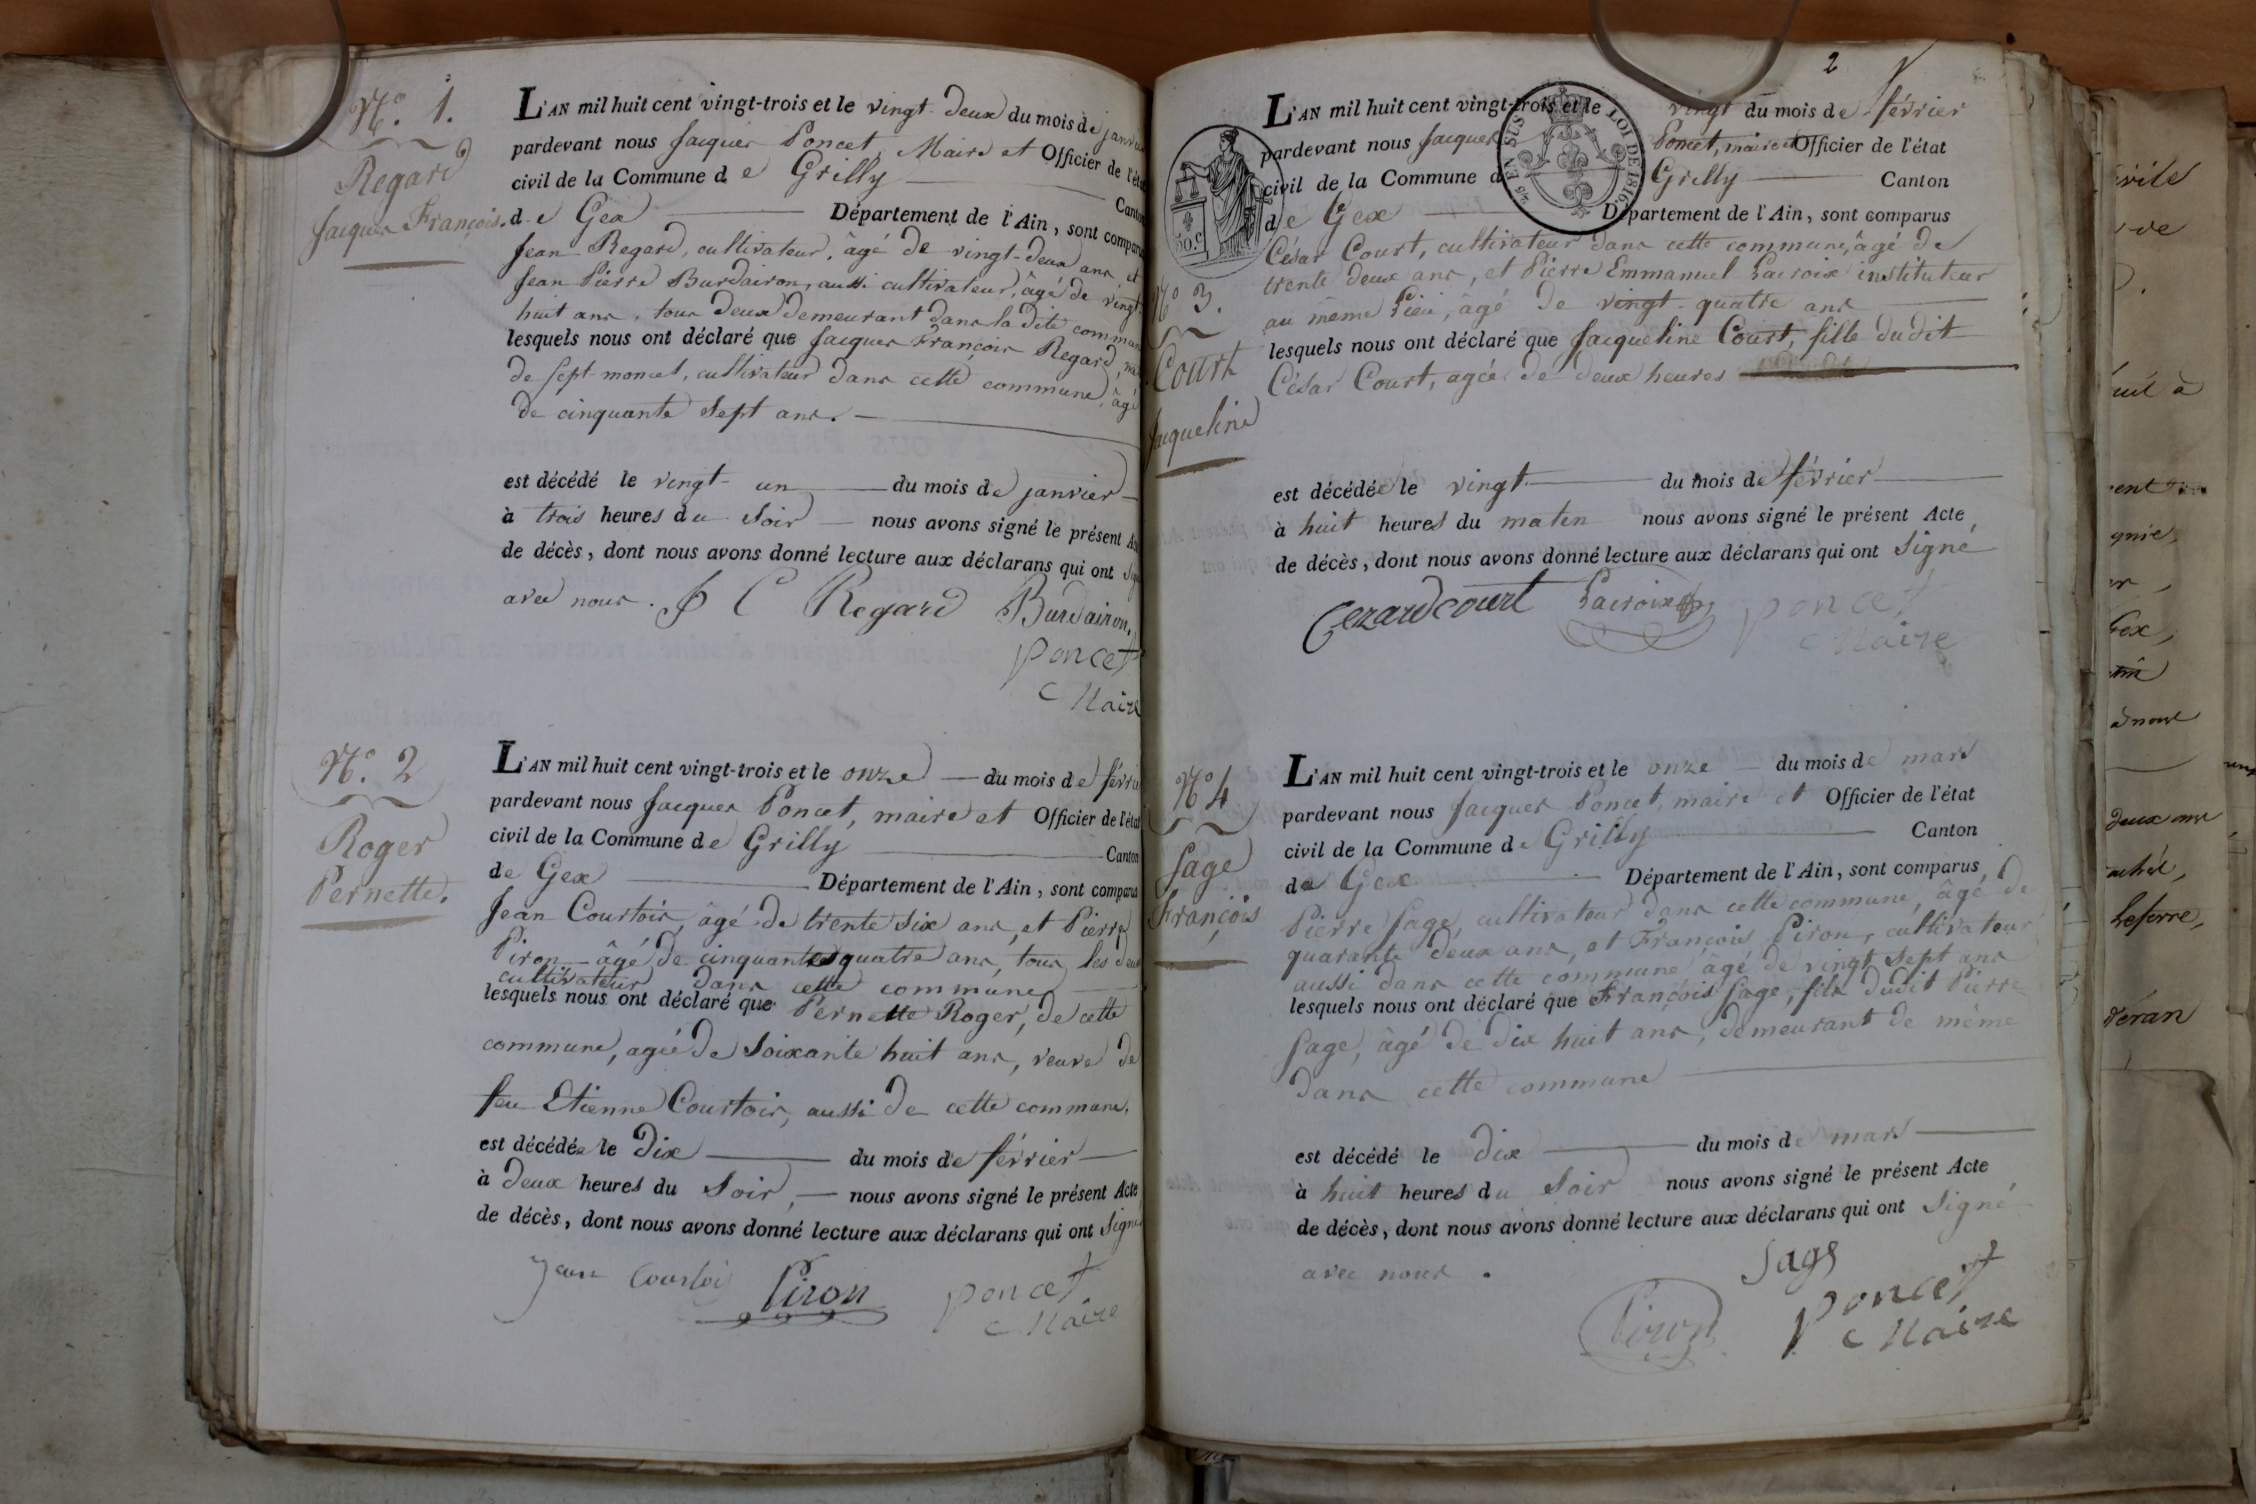 N.° 1.
Regard
Jacques François.
L'AN mil huit cent vingt-trois et le vingt-deux du mois de janvier
pardevant nous Jacques Poncet, Maire et Officier de l'état
civil de la Commune de Grilly Canton
de Gex Département de l'Ain, sont comparus
Jean Regard, cultivateur, âgé de vingt-deux ans et
Jean Pierre Burdairon, aussi cultivateur, âgé de vingt-
huit ans, tous deux demeurant dans la dite commune
lesquels nous ont déclaré que Jacques François Regard,
de Sept-moncel, cultivateur dans cette commune, âgé
de cinquante Sept ans.
est décédé le vingt-un du mois de janvier
à trois heures du Soir nous avons signé le présent
de décès, dont nous avons donné lecture aux déclarans qui ont
avec nous. J C Regard Burdairon.
Poncet
Maire
N.° 2
Roger
Pernette.
L'AN mil huit cent vingt-trois et le onze du mois de févri
pardevant nous Jacques Poncet, maire et Officier de l'état
civil de la Commune de Grilly Canton
de Gex Département de l'Ain, sont comparus
Jean Courtois, âgé de trente six ans, et Pierre
Piron âgé de cinquante quatre ans, tous les deux
cultivateur dans cette commune
lesquels nous ont déclaré que Pernette Roger, de cette
commune, agée de Soixante huit ans, veuve de
feu Etienne Courtois, aussi de cette commune.
est décédée le Dix du mois de février
à Deux heures du Soir, nous avons signé le présent Acte
de décès, dont nous avons donné lecture aux déclarans qui ont Signé
Jean Courtoi Piron Poncet
Maire
2
45 EN SUS LOI DE 1816
50.C
N° 3.
Court
Jaqueline
L'AN mil huit cent vingt-trois et le vingt du mois de février
pardevant nous Jacques Poncet, maire et Officier de l'état
civil de la Commune d Grilly Canton
de Gex Département de l'Ain, sont comparus
César Court, cultivateur dans cette commune, âgé de
trente deux ans, et Pierre Emmanuel Lacroix instituteur
au même Lieu, âgé de vingt-quatre ans
lesquels nous ont déclaré que Jacqueline Court, fille dudit
César Court, agée de deux heures
est décédée le vingt du mois de février
à huit heures du maten nous avons signé le présent Acte
de décès, dont nous avons donné lecture aux déclarans qui ont Signé
Cezard court Lacroix Poncet
Maire
N° 4
Sage
François
L'AN mil huit cent vingt-trois et le onze du mois de mars
pardevant nous Jacques Poncet, maire et Officier de l'état
civil de la Commune de Grilly Canton
de Gex Département de l'Ain, sont comparus
Pierre Sage, cultivateur dans cette commune, âgé de
quarante deux ans, et François Piron, cultivateur
aussi dans cette commune âgé de vingt Sept ans
lesquels nous ont déclaré que François Sage, fils dudit Pierre
Sage, âgé de dix huit ans, demeurant de même
dans cette commune
est décédé le dix du mois de mars
à huit heures du Soir nous avons signé le présent Acte
de décès, dont nous avons donné lecture aux déclarans qui ont Signé
avec nous.
Sage
Piron Poncet
Maire